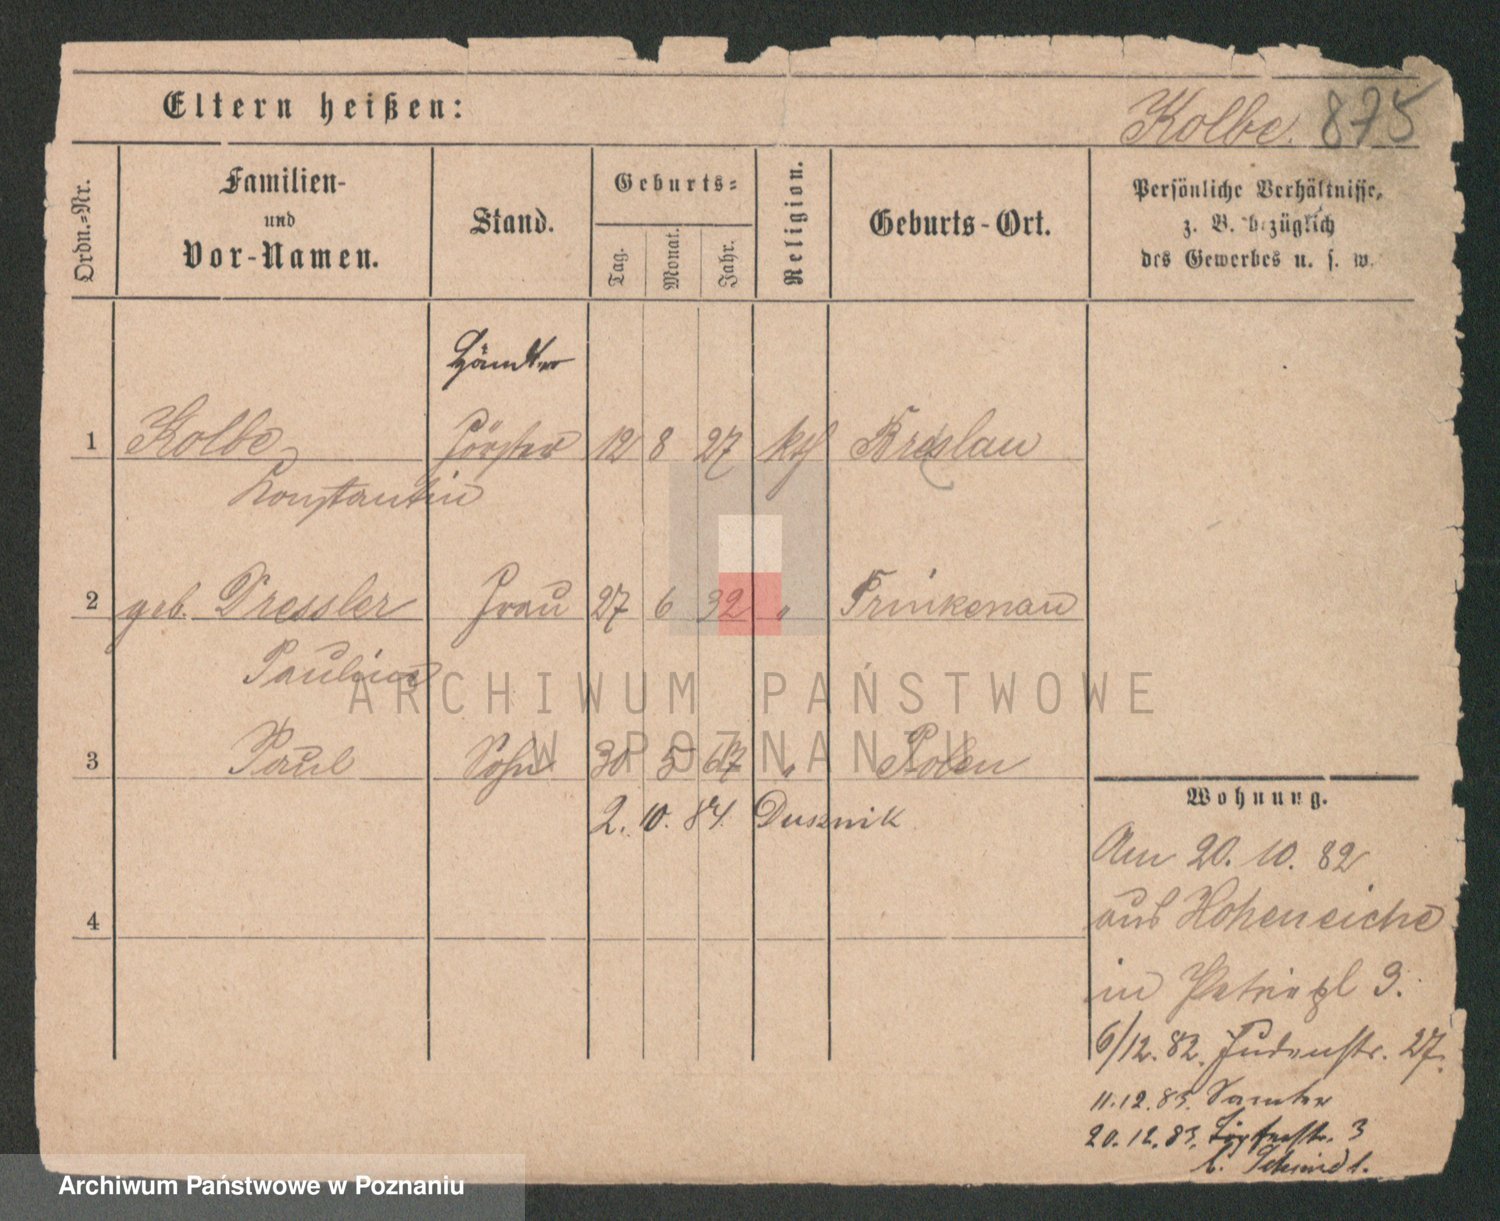 Eltern heißen:
Kolbe. 875
Ordn.-Nr.
Familien-
und
Vor-Namen.
Stand.
Geburts-
Tag. Monat. Jahr.
Religion.
Geburts-Ort.
Persönliche Verhältnisse,
z. B. bezüglich
des Gewerbes u. s. w.
Händler
1 Kolbe Förster 12 8 27 kth Breslau
Konstantin
2 geb. Dressler Frau 27 6 32 " Trinkenau
Pauline
3 Paul Sohn 30 5 67 " Polen
2. 10. 84. Dusznik
4
Wohnung.
Am 20. 10. 82
aus Hoheneiche
in Petripl 3.
6/12. 82. Judenstr. 27.
11.12.83. Samter
20.12.83. 3
b. Schmidt.
ARCHIWUM PAŃSTWOWE
W POZNANIU
Archiwum Państwowe w Poznaniu